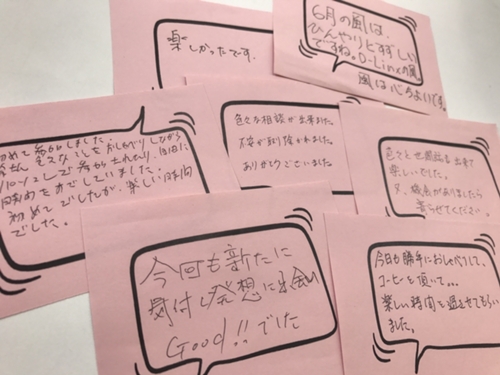 楽しかったです。
6月の風は、
ひんやりとすずしい
ですね。D-Linxの風
風は心地よいです。
初めて参加しました。
しながら
時間をすごしていました。
初めてでしたが、楽しい時間
でした。
色々な相談が出来ました。
不安が取り除かれました。
ありがとうございました。
色々と世間話も出来て
楽しいでした。
又、機会がありましたら
寄らせてください。
今回も新たに
気付し発想に出会い
Good!!でした
今日も勝手におしゃべりして、
コーヒーを頂いて...
楽しい時間を過させてもらい
ました。